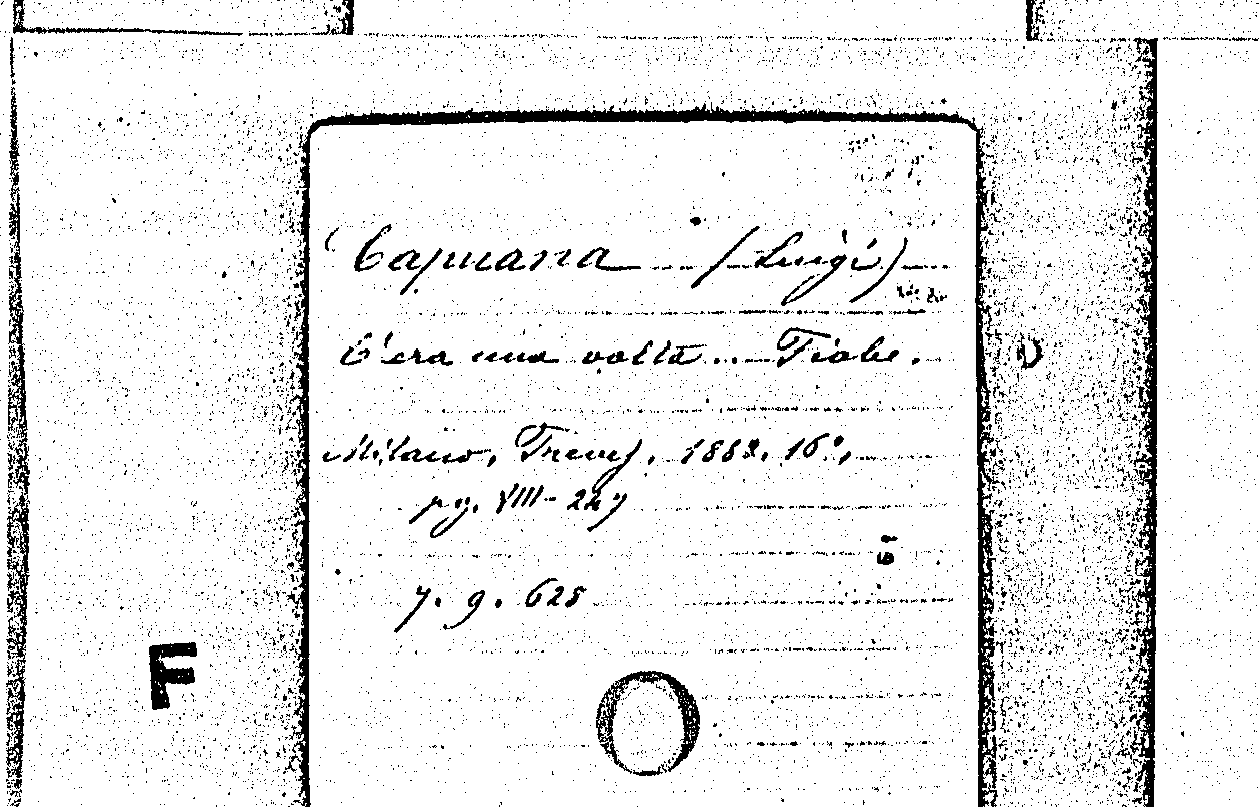 Capuana (Luigi)
C'era una volta... Fiabe.
Milano, Treves, 1882. 16°,
pg. VIII-247
7. 9. 628
F